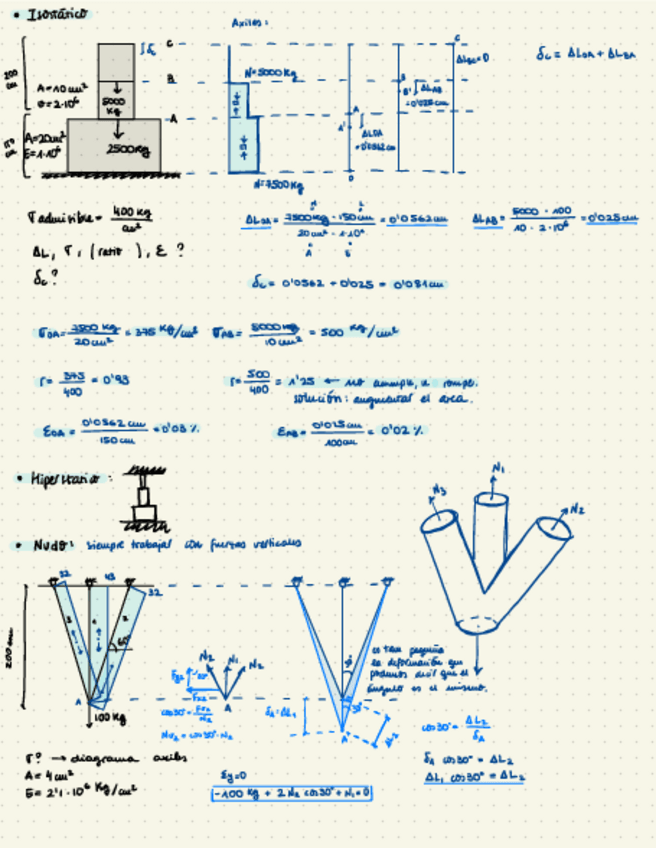 • Isostático
Axiles:
δc
C
B
A
200 cm
A=10cm²
E=2·10⁶
5000 Kg
150 cm
A=20cm²
E=1·10⁶
2500Kg
N=5000Kg
N=7500Kg
A
A'
ΔLOA =0'0562cm
O
B
B'
ΔLAB =0'025cm
C
ΔLBC=0
δc = ΔLOA + ΔLBA
σadmisible = 400 Kg / cm²
ΔL, σ, (ratio ), ε ?
δc?
ΔLOA = 7500Kg · 150cm / 20cm² · 1·10⁶ = 0'0562cm
N
L
A
E
ΔLAB = 5000 · 100 / 10 · 2·10⁶ = 0'025cm
δc = 0'0562 + 0'025 = 0'081cm
σOA = 7500 Kg / 20cm² = 375 Kg/cm²
σAB = 5000Kg / 10cm² = 500 Kg/cm²
r = 375 / 400 = 0'93
r = 500 / 400 = 1'25 ← no cumple, se rompe.
solución: augmentar el area.
εOA = 0'0562 cm / 150cm = 0'03 %
εAB = 0'025cm / 100cm = 0'02 %
• Hiperstatico:
• Nudo: siempre trabajar con fuerzas verticales
N3
N1
N2
32
43
32
3
1
2
60°
200cm
A
100 Kg
N2
N1
N2
A
cos30° =
Nv2 = cos30° · N2
δA=ΔL1
30°
A'
es tan pequeña
la deformación que
podemos decir que el
ángulo es el mismo.
cos30° = ΔL2 / δA
δA cos30° = ΔL2
ΔL1 cos30° = ΔL2
σ? → diagrama axiles
A = 4cm²
E = 2'1·10⁶ Kg/cm²
Σy=0
-100 Kg + 2 N2 cos30° + N1 = 0